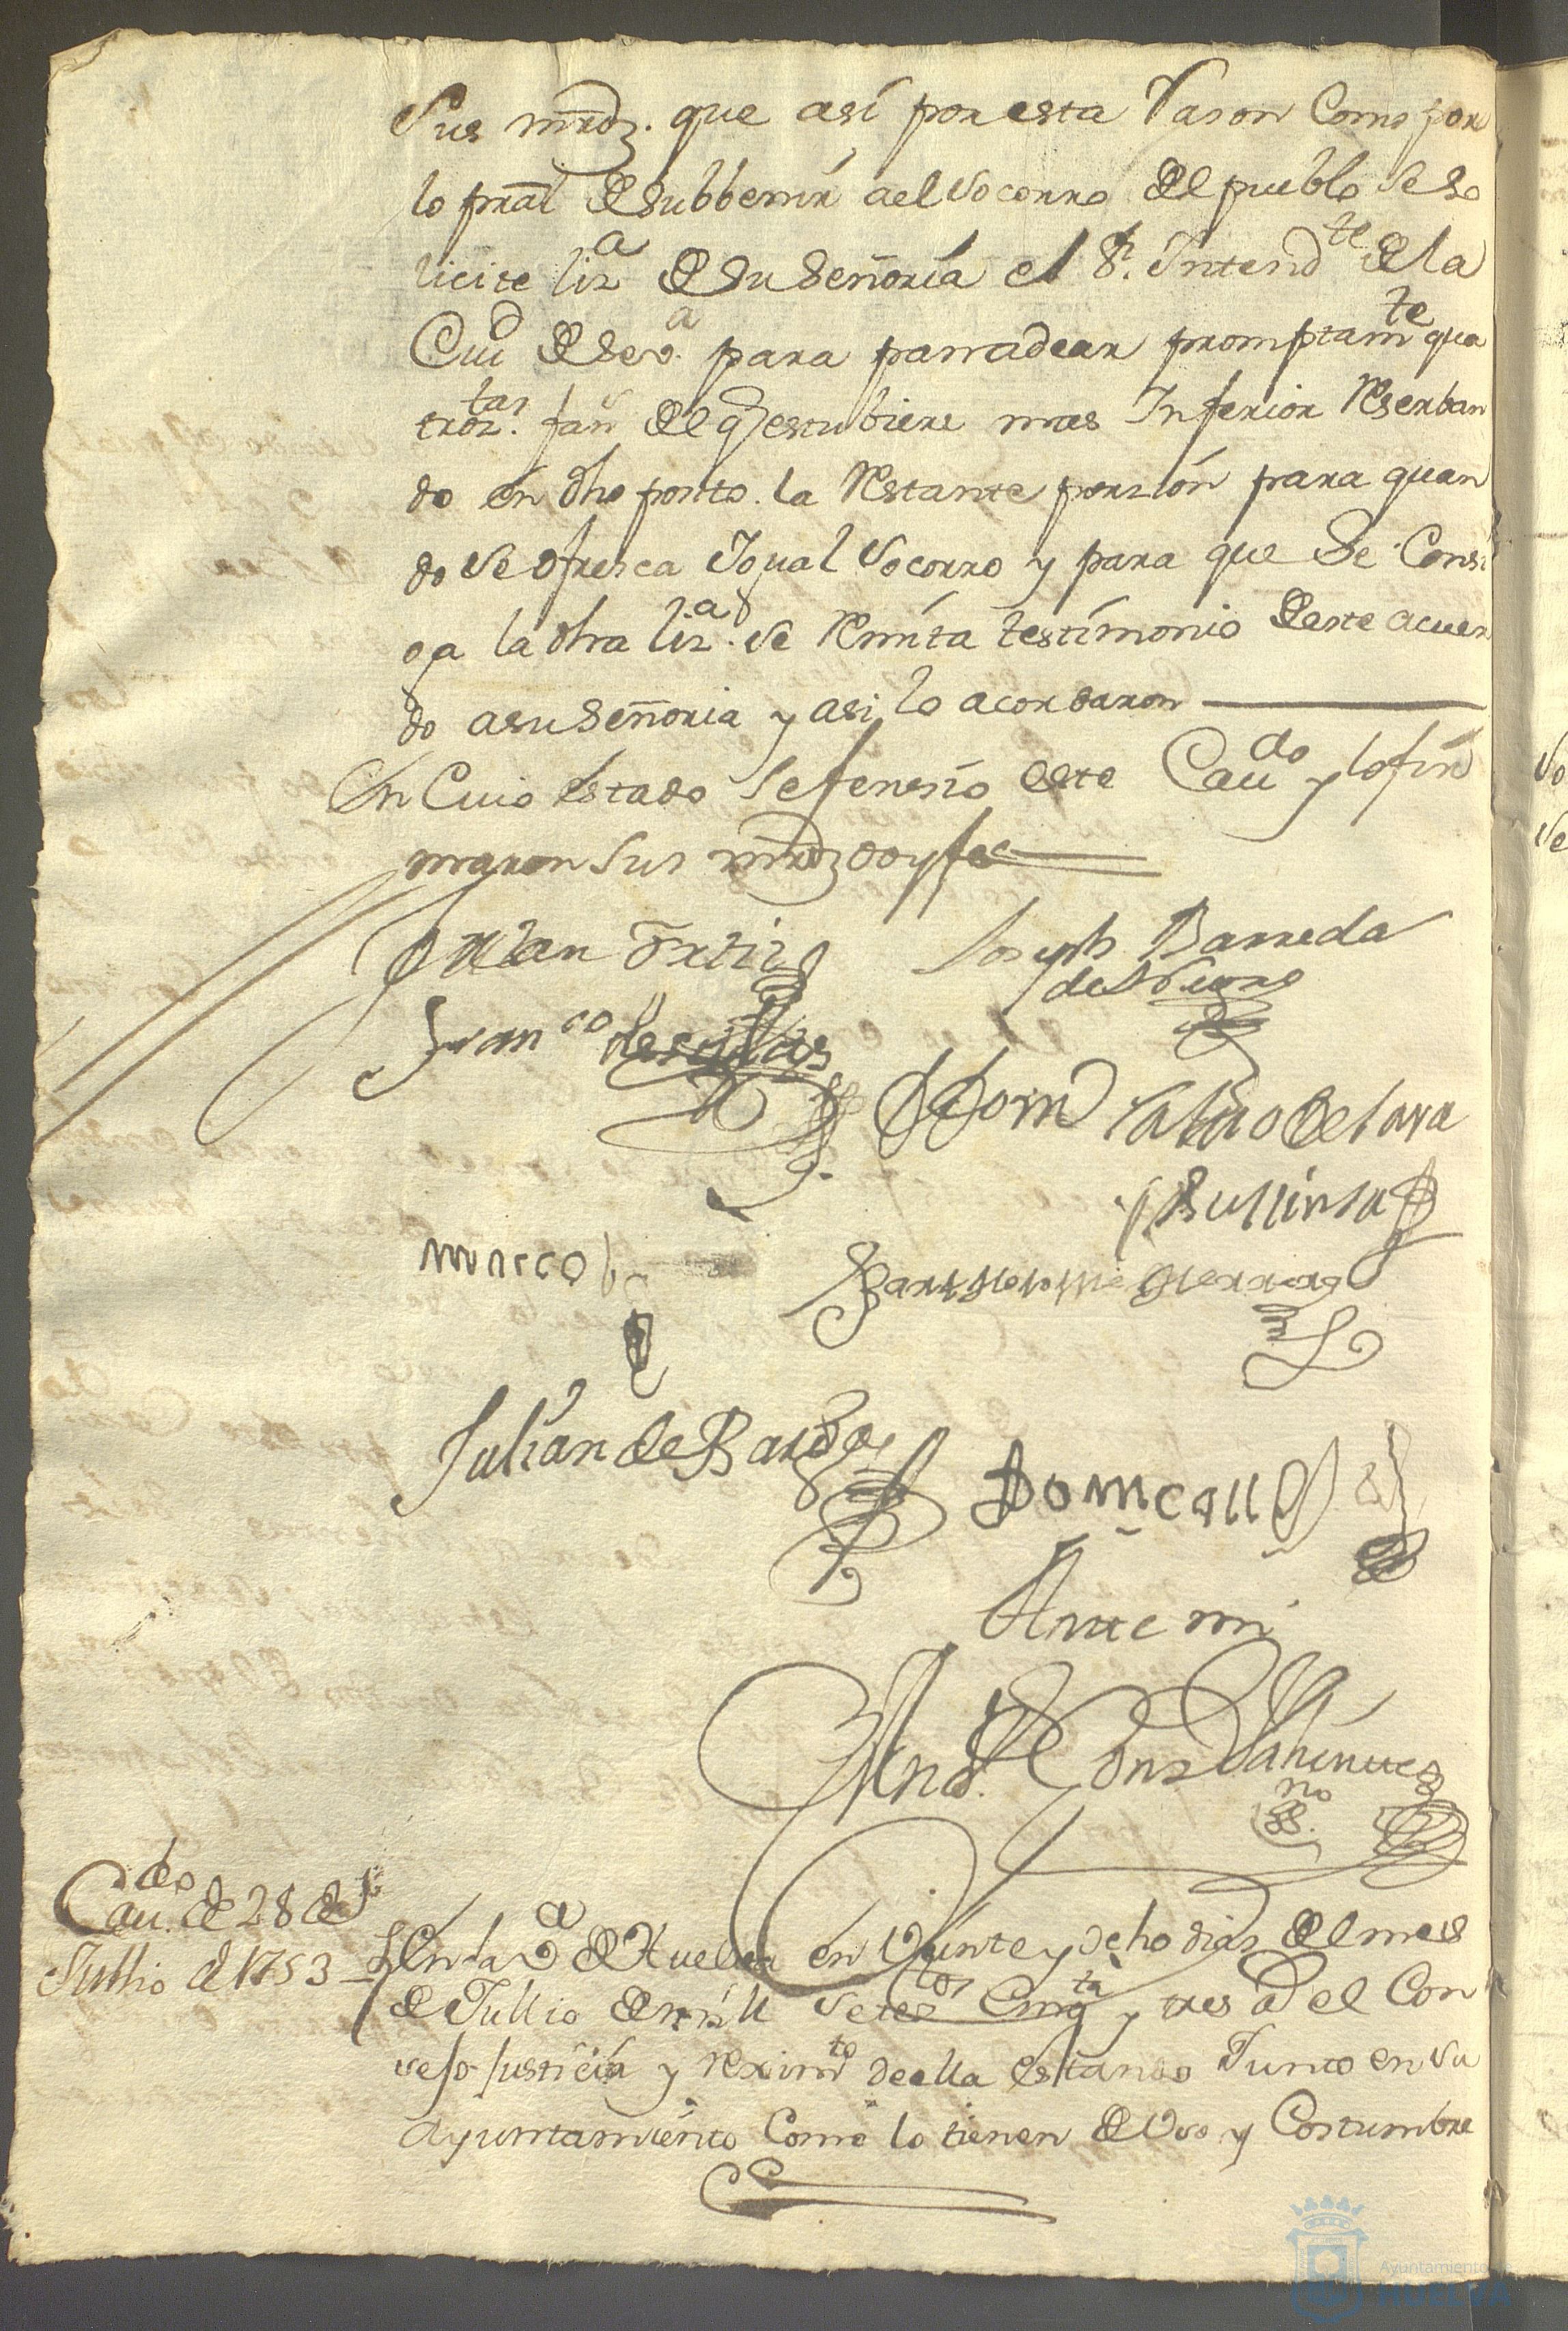 Sus mrdz. que asi por esta Rason Como por
lo pral de subbenir a el socorro del pueblo se so
licite liza de su Señoria el Sr. Intendte de la
Ciud de Seva. para panadear promptamte qua
troztas. fans de el q estubiere mas Inferior Reserban
do en dho posito. la Restante porzion para quan
do se ofresca Igual socorro y para que se Consi
ga la dha liza. se Remita testimonio de este acuer
do a su Señoria y asi lo acordaron
En Cuio estado se fenesio este Caudo y lo fir
maron Sus mrdz doy fee
Joseph Barreda
Franco de
y Bussinsa
Bartholome Herrera
Julian de
Ante mi
Caudo. de 28 de
Jullio de 1753
En la Va de Huelva en Veinte y ocho dias del mes
de Jullio de mill setestos Cinqta y tres as el Con
sejo Justicia y Reximto de ella estando Junto en su
Ayuntamiento Como lo tienen de Uso y Costumbre
Ayuntamiento
HUELVA